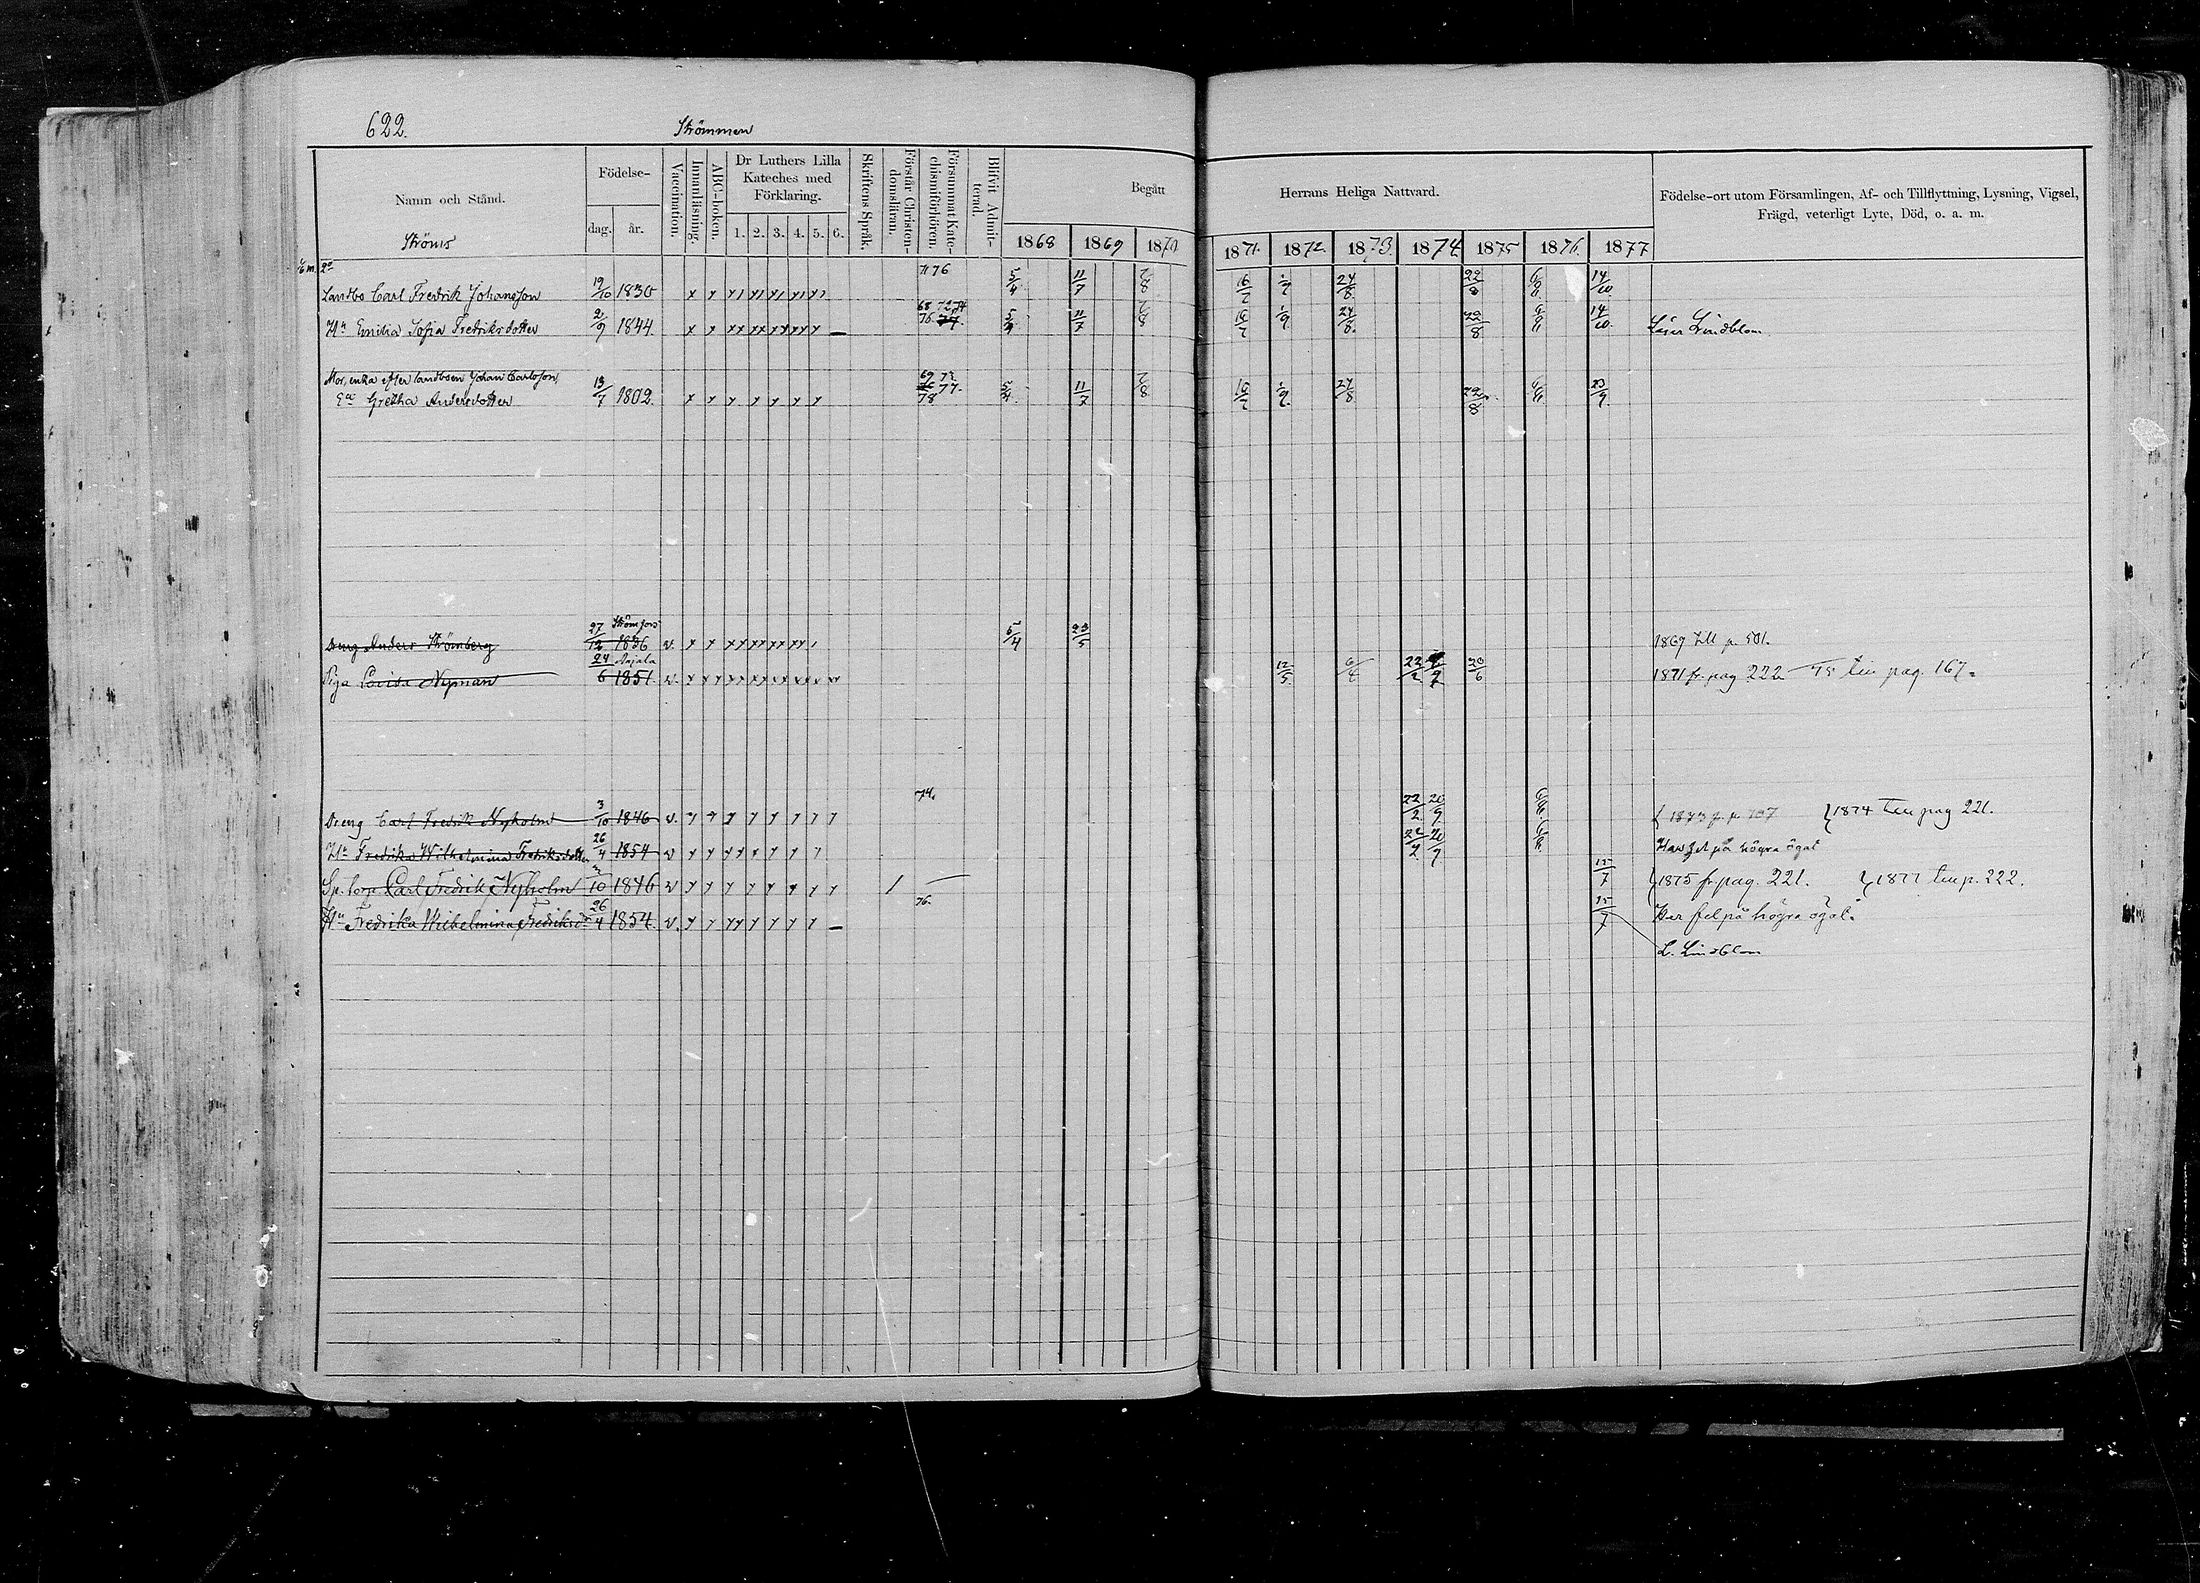 622.
Strömmen
Namn och Stånd.
Ströms
Födelse-
dag. år.
Vaccination.
Innanläsning.
ABC-boken.
Dr Luthers Lilla
Kateches med
Förklaring.
1. 2. 3. 4. 5. 6.
Skriftens Språk.
Förstår Christen-
domsläran.
Försummat Kate-
chismiförhören.
Blifvit Admit-
terad.
Begått
Herrans Heliga Nattvard.
1868 1869 1870
1871. 1872. 1873. 1874 1875 1876. 1877
Födelse-ort utom Församlingen, Af- och Tillflyttning, Lysning, Vigsel,
Frägd, veterligt Lyte, Död, o. a. m.
Landbo Carl Fredrik Johansson 19/10 1830 76 5/4 11/7 16/7 24/8 22/8 14/10
Hu Emilia Sofia Fredriksdotter 2/9 1844. 76 77. 5/4 11/7 16/7 24/8 22/8 14/10. Läser Lindblom
Mor, enka efter landboen Johan Carlsson,
Eva Gretha Andersdotter 13/7 1802. 77. 78 5/4 11/7 16/7 24/8 22/8 23/9.
Dreng Anders Strömberg 27/12 Strömfors 1836 v. 5/4 23/5 1869 till p. 501.
Piga Lovisa Nyman 24/6 Anjala 1851. v. 12/5 22/2 20/6 1871 fr. pag 222 75 till pag. 167.
Dreng Carl Fredrik Nyholm 3/10 1846 v. 74. 22/2 20/9 1874 till pag 221.
Hu Fredrika Wilhelmina Fredriksdotter 26/4 1854 v 22/2 20/9 Har fel på högra ögat
Sp. torp Carl Fredrik Nyholm 3/10 1846 v 15/7 1875 fr. pag. 221. 1877 till p. 222.
Hu Fredrika Wilhelmina Fredriksdr 26/4 1854. v. 76. 15/7 Har fel på högra ögat.
L. Lindblom